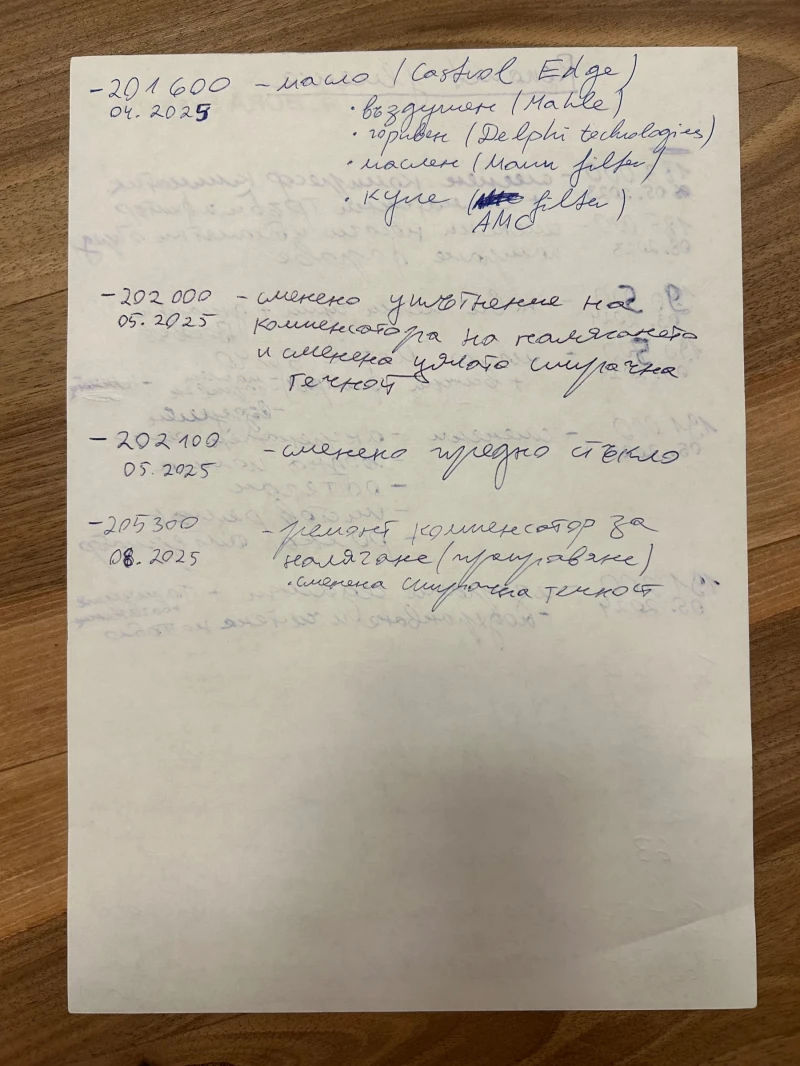 -201600 - масло (Castrol Edge)
04.2025 • въздушен (Mahle)
• горивен (Delphi technologies)
• маслен (Mann filter)
• купе (AMC filter)
-202000 - сменено уплътнение на
05.2025 компенсатора на налягането
и сменена цялата спирачна
течност
-202100 - сменено предно стъкло
05.2025
-205300 - ремонт компенсатор за
08.2025 налягане (праправяне)
• сменена спирачна течност